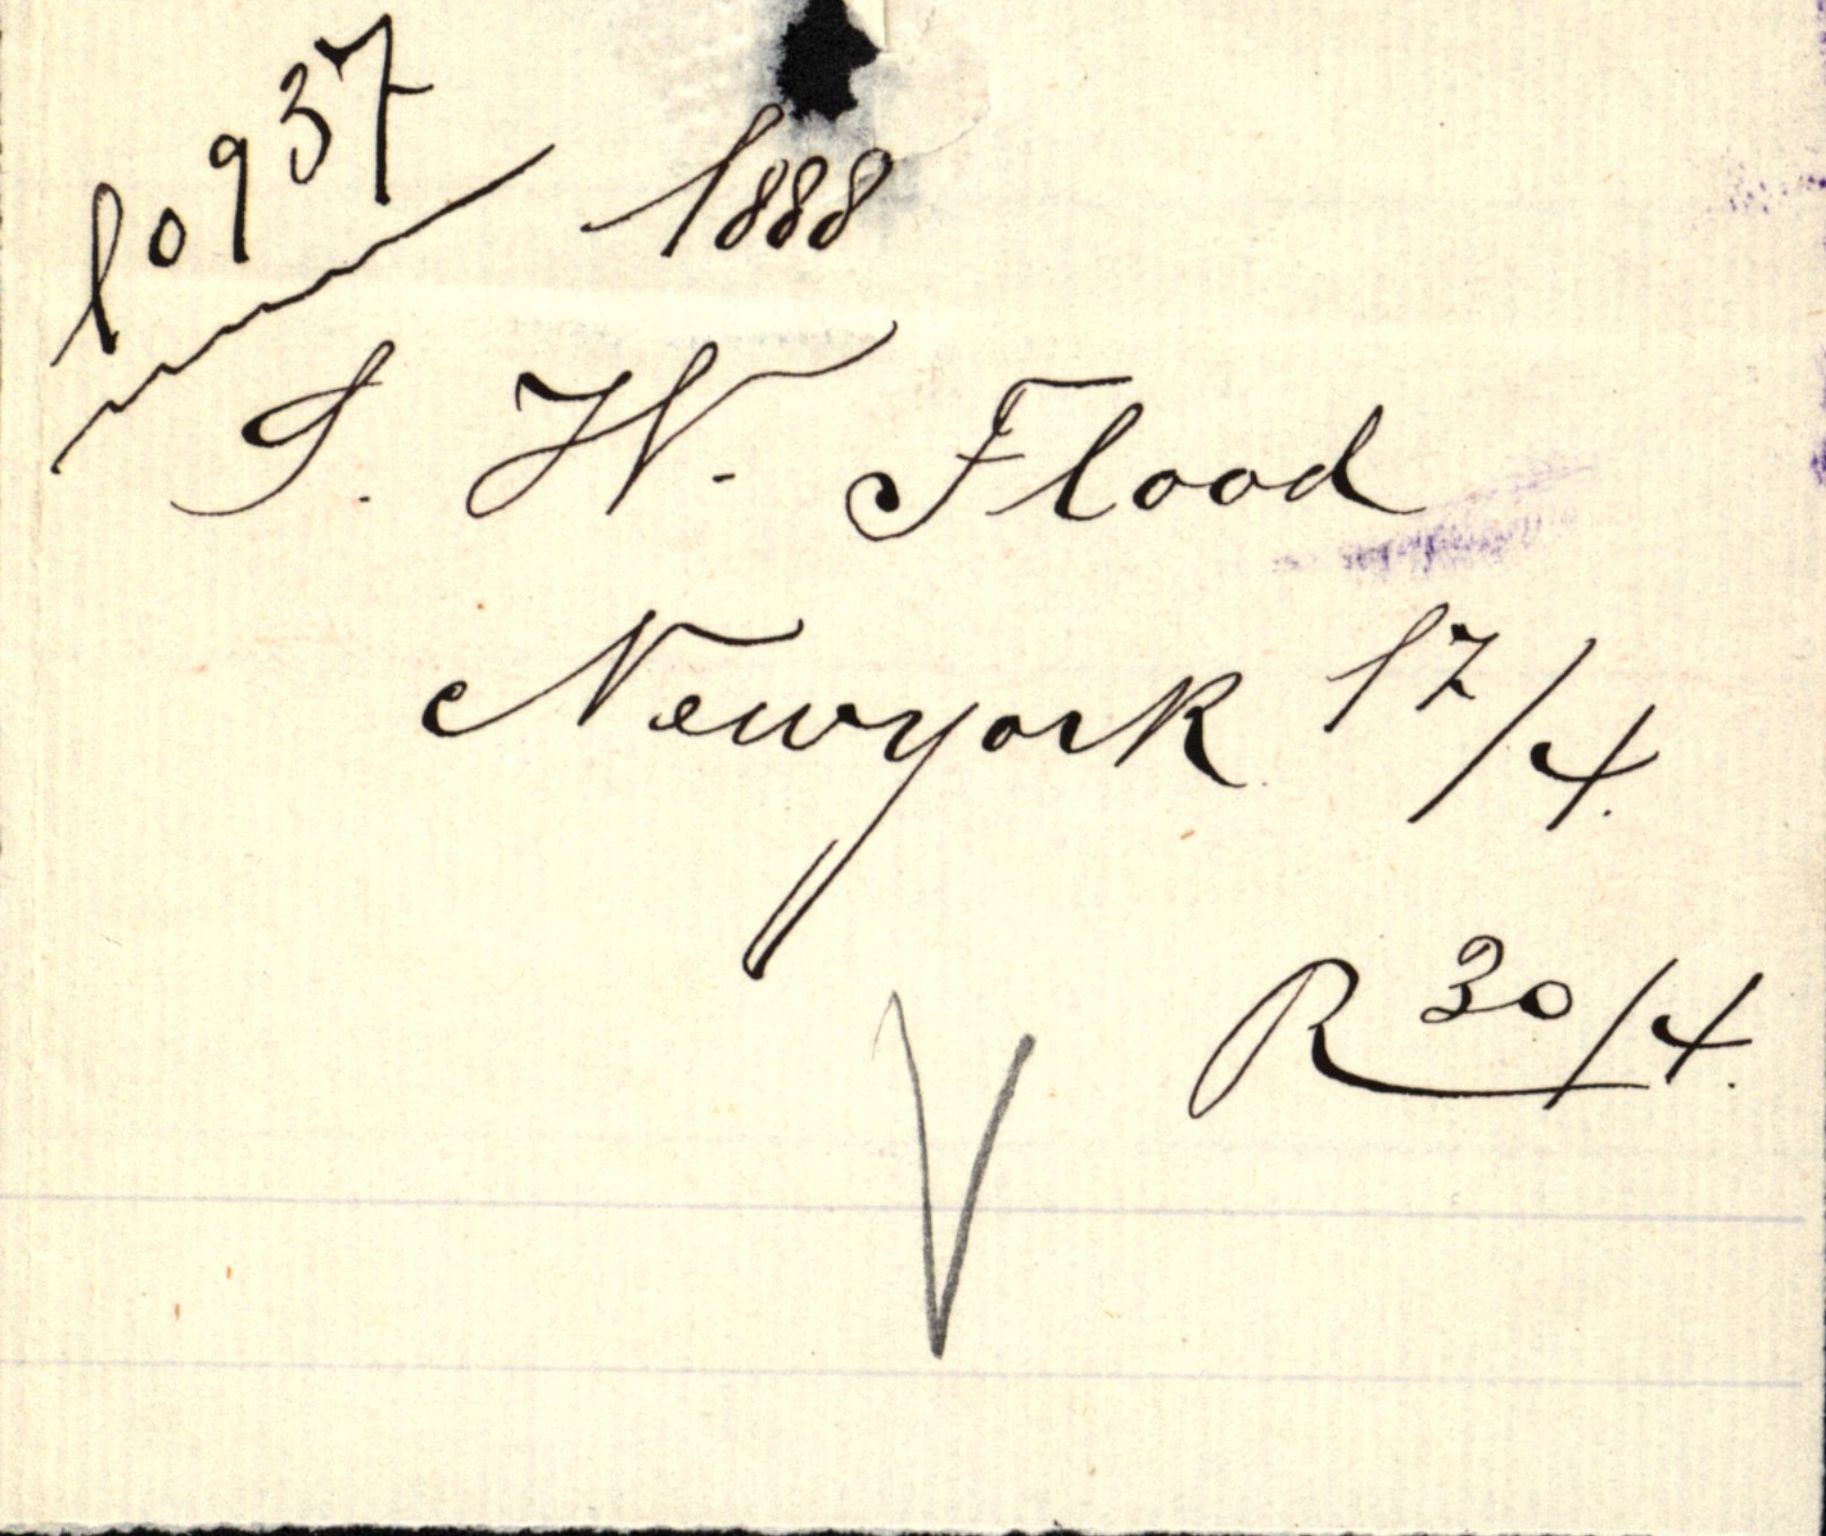 10937
1888
S. W. Flood
Newyork 17/4.
R 30/4.